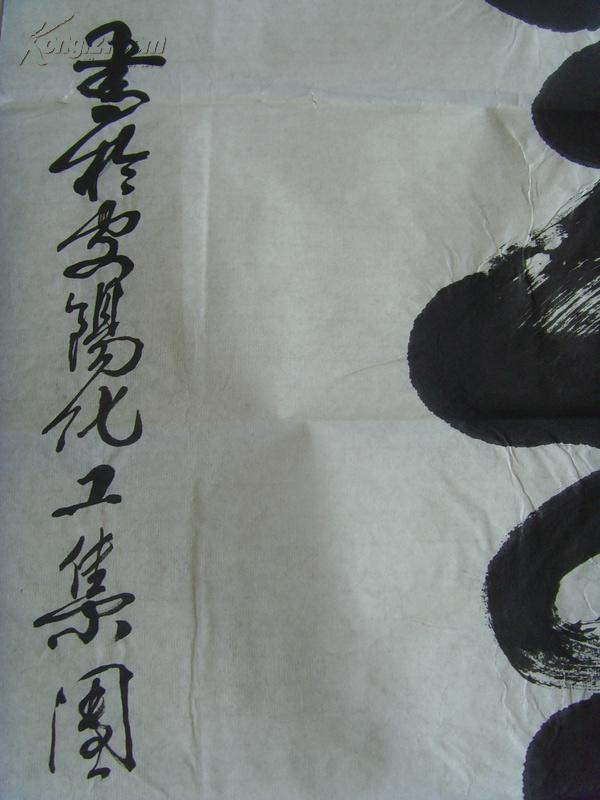 書於安陽化工集團